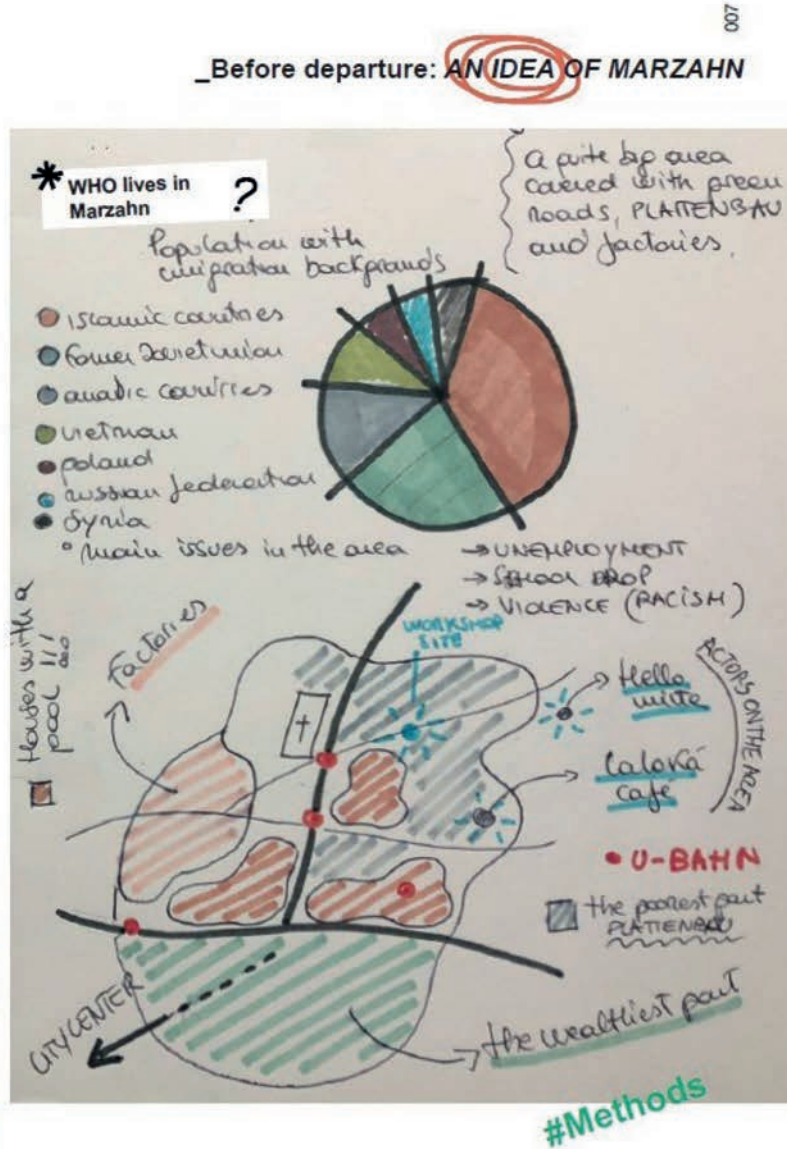 007
_Before departure: AN IDEA OF MARZAHN
* WHO lives in
Marzahn ?
a quite big area
covered with green
roads, PLATTENBAU
and factories.
Population with
emigration backgrounds
islamic countries
former Soviet union
arabic countries
vietnam
poland
russian federation
Syria
° main issues in the area
→ UNEMPLOYMENT
→ SCHOOL DROP
→ VIOLENCE (RACISM)
Houses with a
pool !!!
Factories
WORKSHOP
SITE
Hello
mitte
LaLoka
café
ACTORS ON THE AREA
U-BAHN
the poorest part
PLATTENBAU
CITY CENTER
the wealthiest part
#Methods